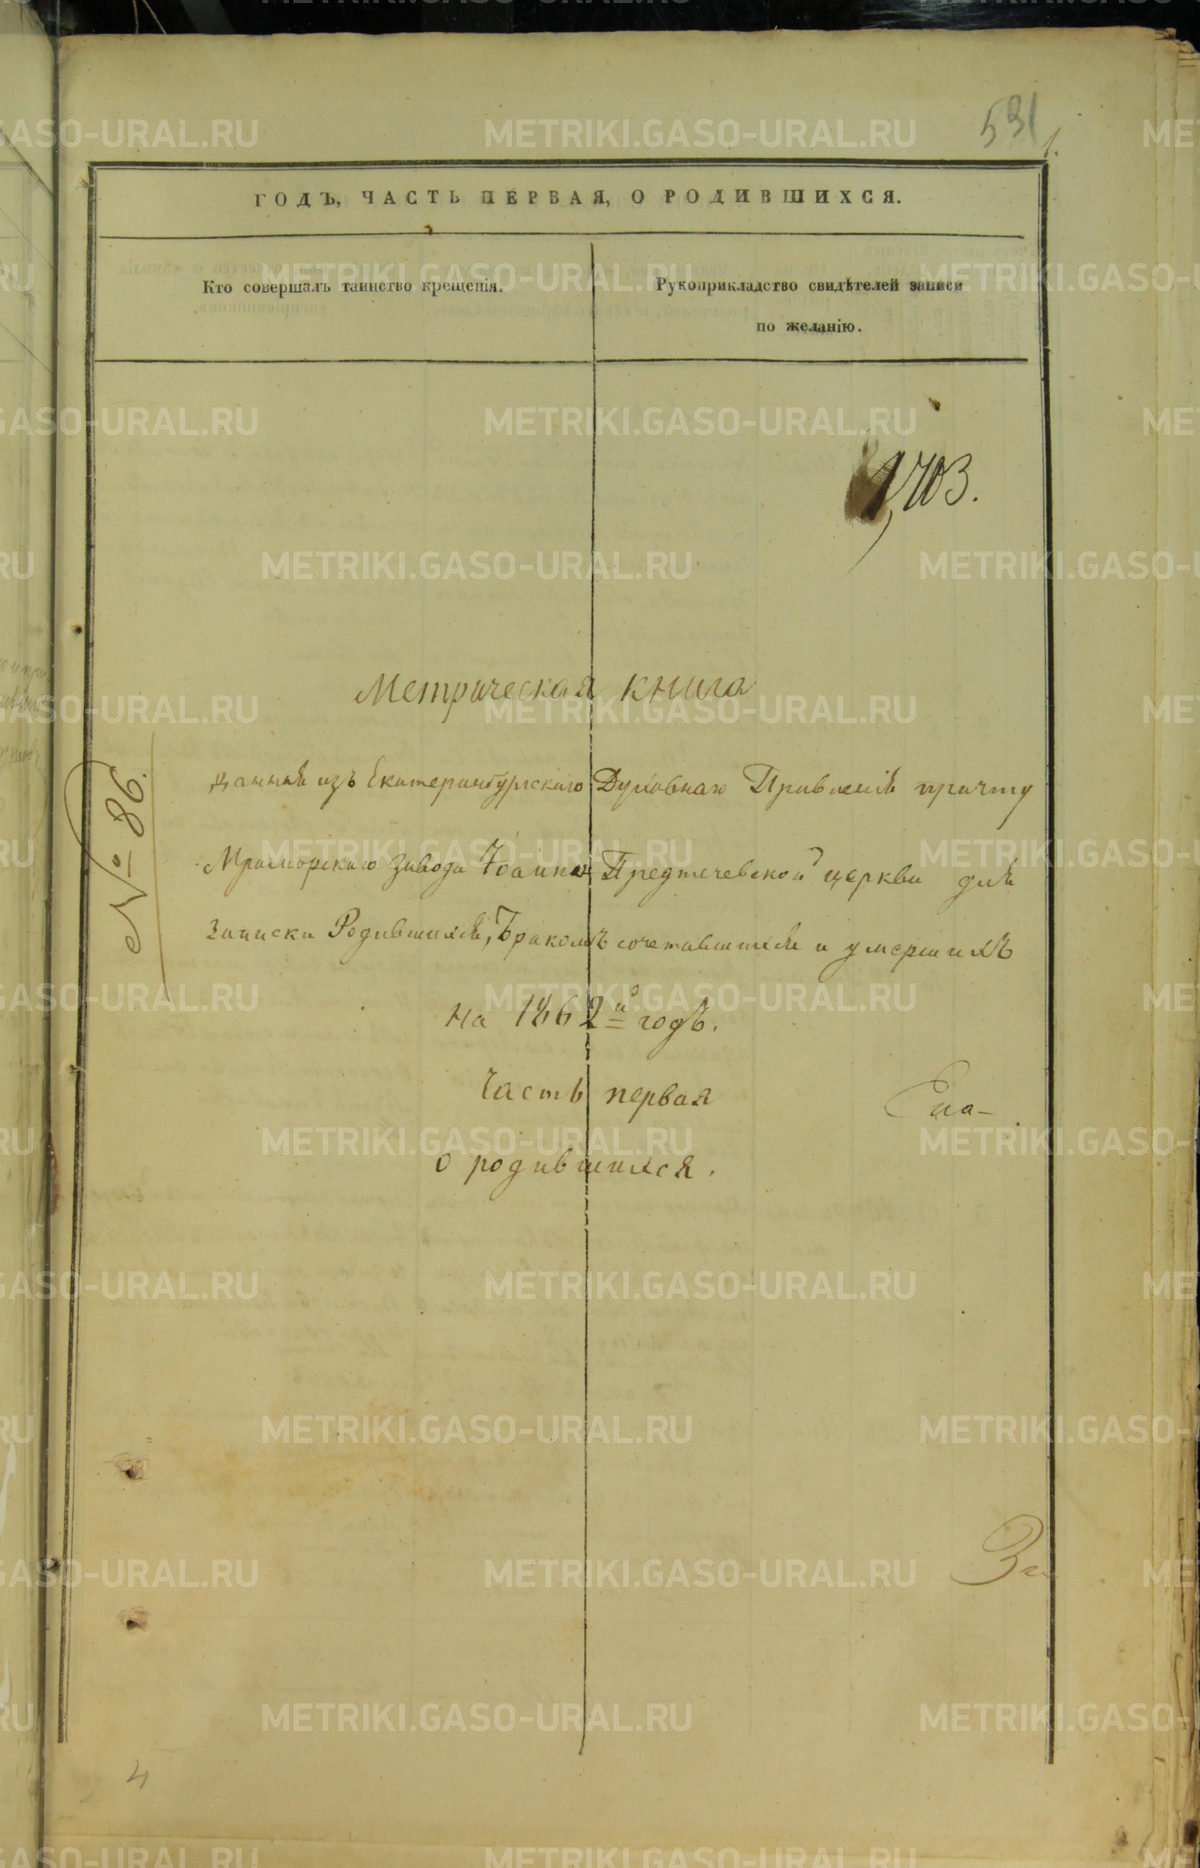 531
1.
ГОДЪ, ЧАСТЬ ПЕРВАЯ, О РОДИВШИХСЯ.
Кто совершалъ таинство крещенія.
Рукоприкладство свидѣтелей записи
по желанію.
1,703.
Метрическая книга
№ 86.
данная изъ Екатеринбургскаго Духовнаго Правленія причту
Мраморскаго завода Іоанно Предтечевской церкви для
записки Родившихся, Бракомъ сочетавшихся и умершихъ
на 1862й годъ.
Часть первая
о родившихся.
За
4
METRIKI.GASO-URAL.RU